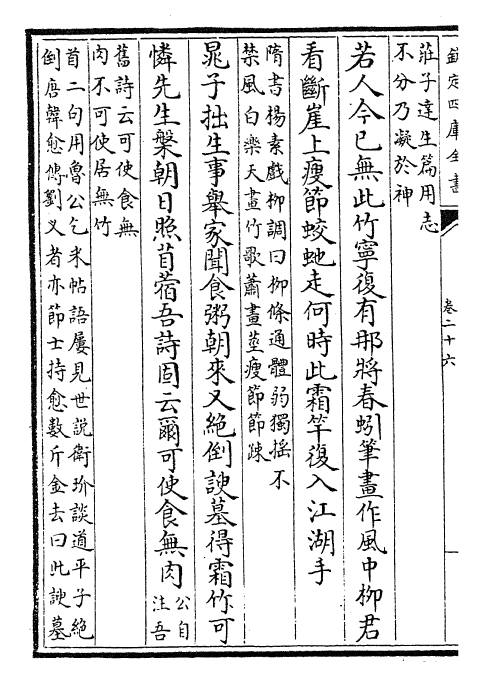 欽定四庫全書
卷二十六
莊子達生篇用志
不分乃凝於神
若人今已無此竹寧復有那將春蚓筆畫作風中柳君
看斷崖上瘦節蛟虵走何時此霜竿復入江湖手
隋書楊素戲柳調曰柳條通體弱獨揺不
禁風白樂天畫竹歌蕭畫莖瘦節節疎
晁子拙生事舉家聞食粥朝來又絶倒諛墓得霜竹可
憐先生槃朝日照苜蓿吾詩固云爾可使食無肉
公自
注吾
舊詩云可使食無
肉不可使居無竹
首二句用魯公乞米帖語屢見世說衛玠談道平子絶
倒唐韓愈傳劉乂者亦節士持愈數斤金去曰此諛墓